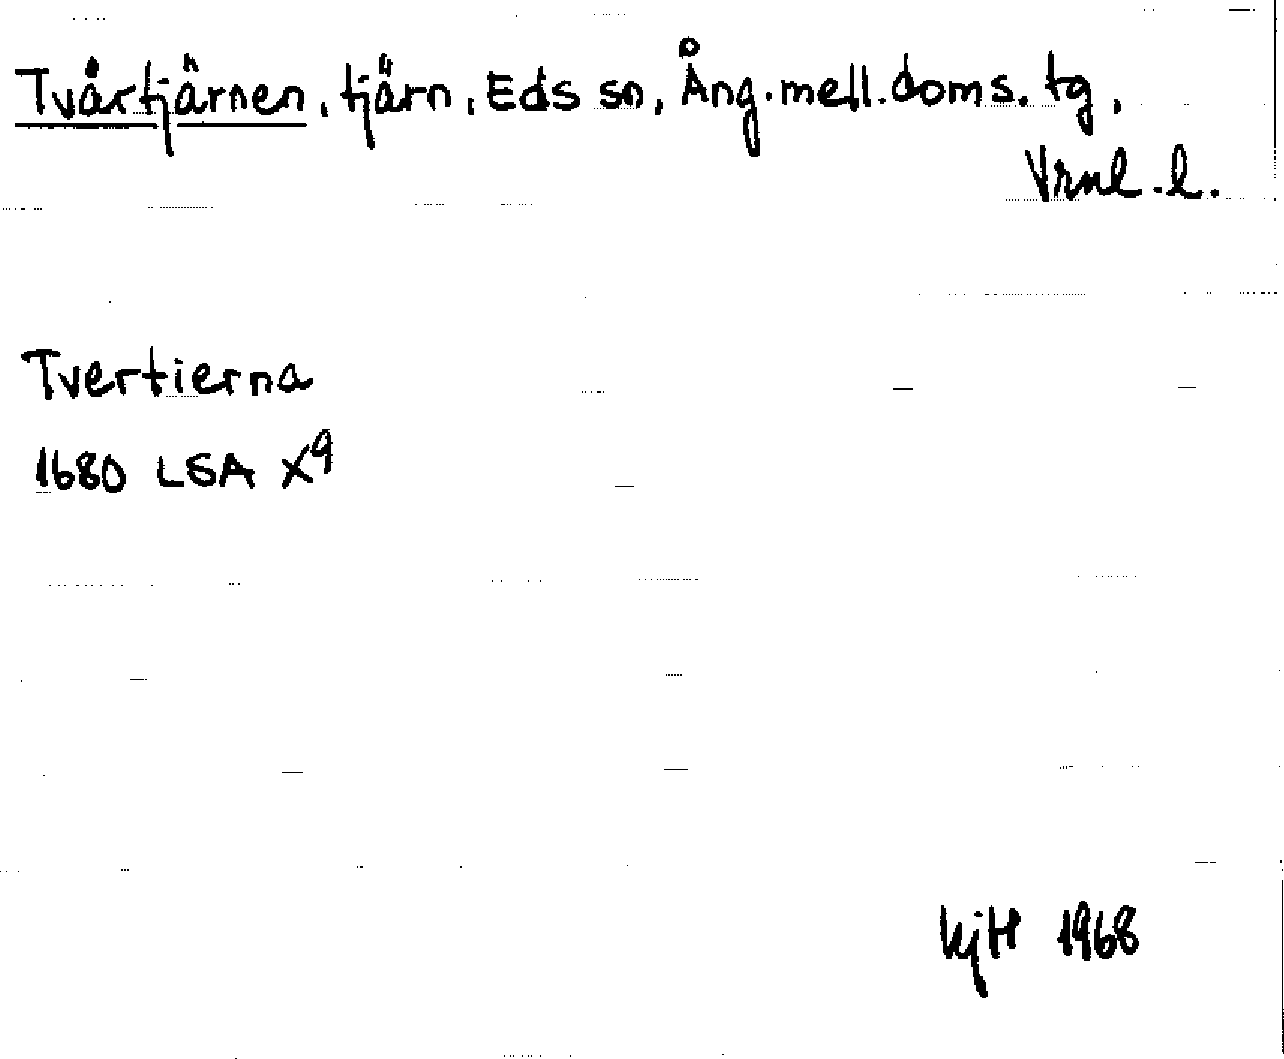 Tvärtjärnen, tjärn, Eds sn, Ång. mell. doms. tg,
Vrml. l.
Tvertierna
1680 LSA X9
KjH 1968